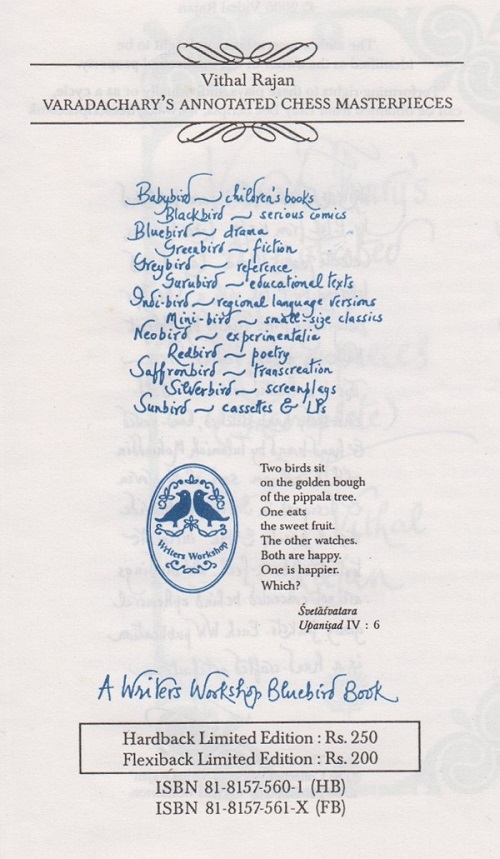 Vithal Rajan
VARADACHARY'S ANNOTATED CHESS MASTERPIECES
Babybird ~ children's books
Blackbird ~ serious comics
Bluebird ~ drama
Greenbird ~ fiction
Greybird ~ reference
Gurubird ~ educational texts
Indi-bird ~ regional language versions
Mini-bird ~ small-size classics
Neobird ~ experimentalia
Redbird ~ poetry
Saffronbird ~ transcreation
Silverbird ~ screenplays
Sunbird ~ cassettes & LPs
Writers Workshop
Two birds sit
on the golden bough
of the pippala tree.
One eats
the sweet fruit.
The other watches.
Both are happy.
One is happier.
Which?
Śvetāśvatara
Upaniṣad IV : 6
A Writers Workshop Bluebird Book
Hardback Limited Edition : Rs. 250
Flexiback Limited Edition : Rs. 200
ISBN 81-8157-560-1 (HB)
ISBN 81-8157-561-X (FB)